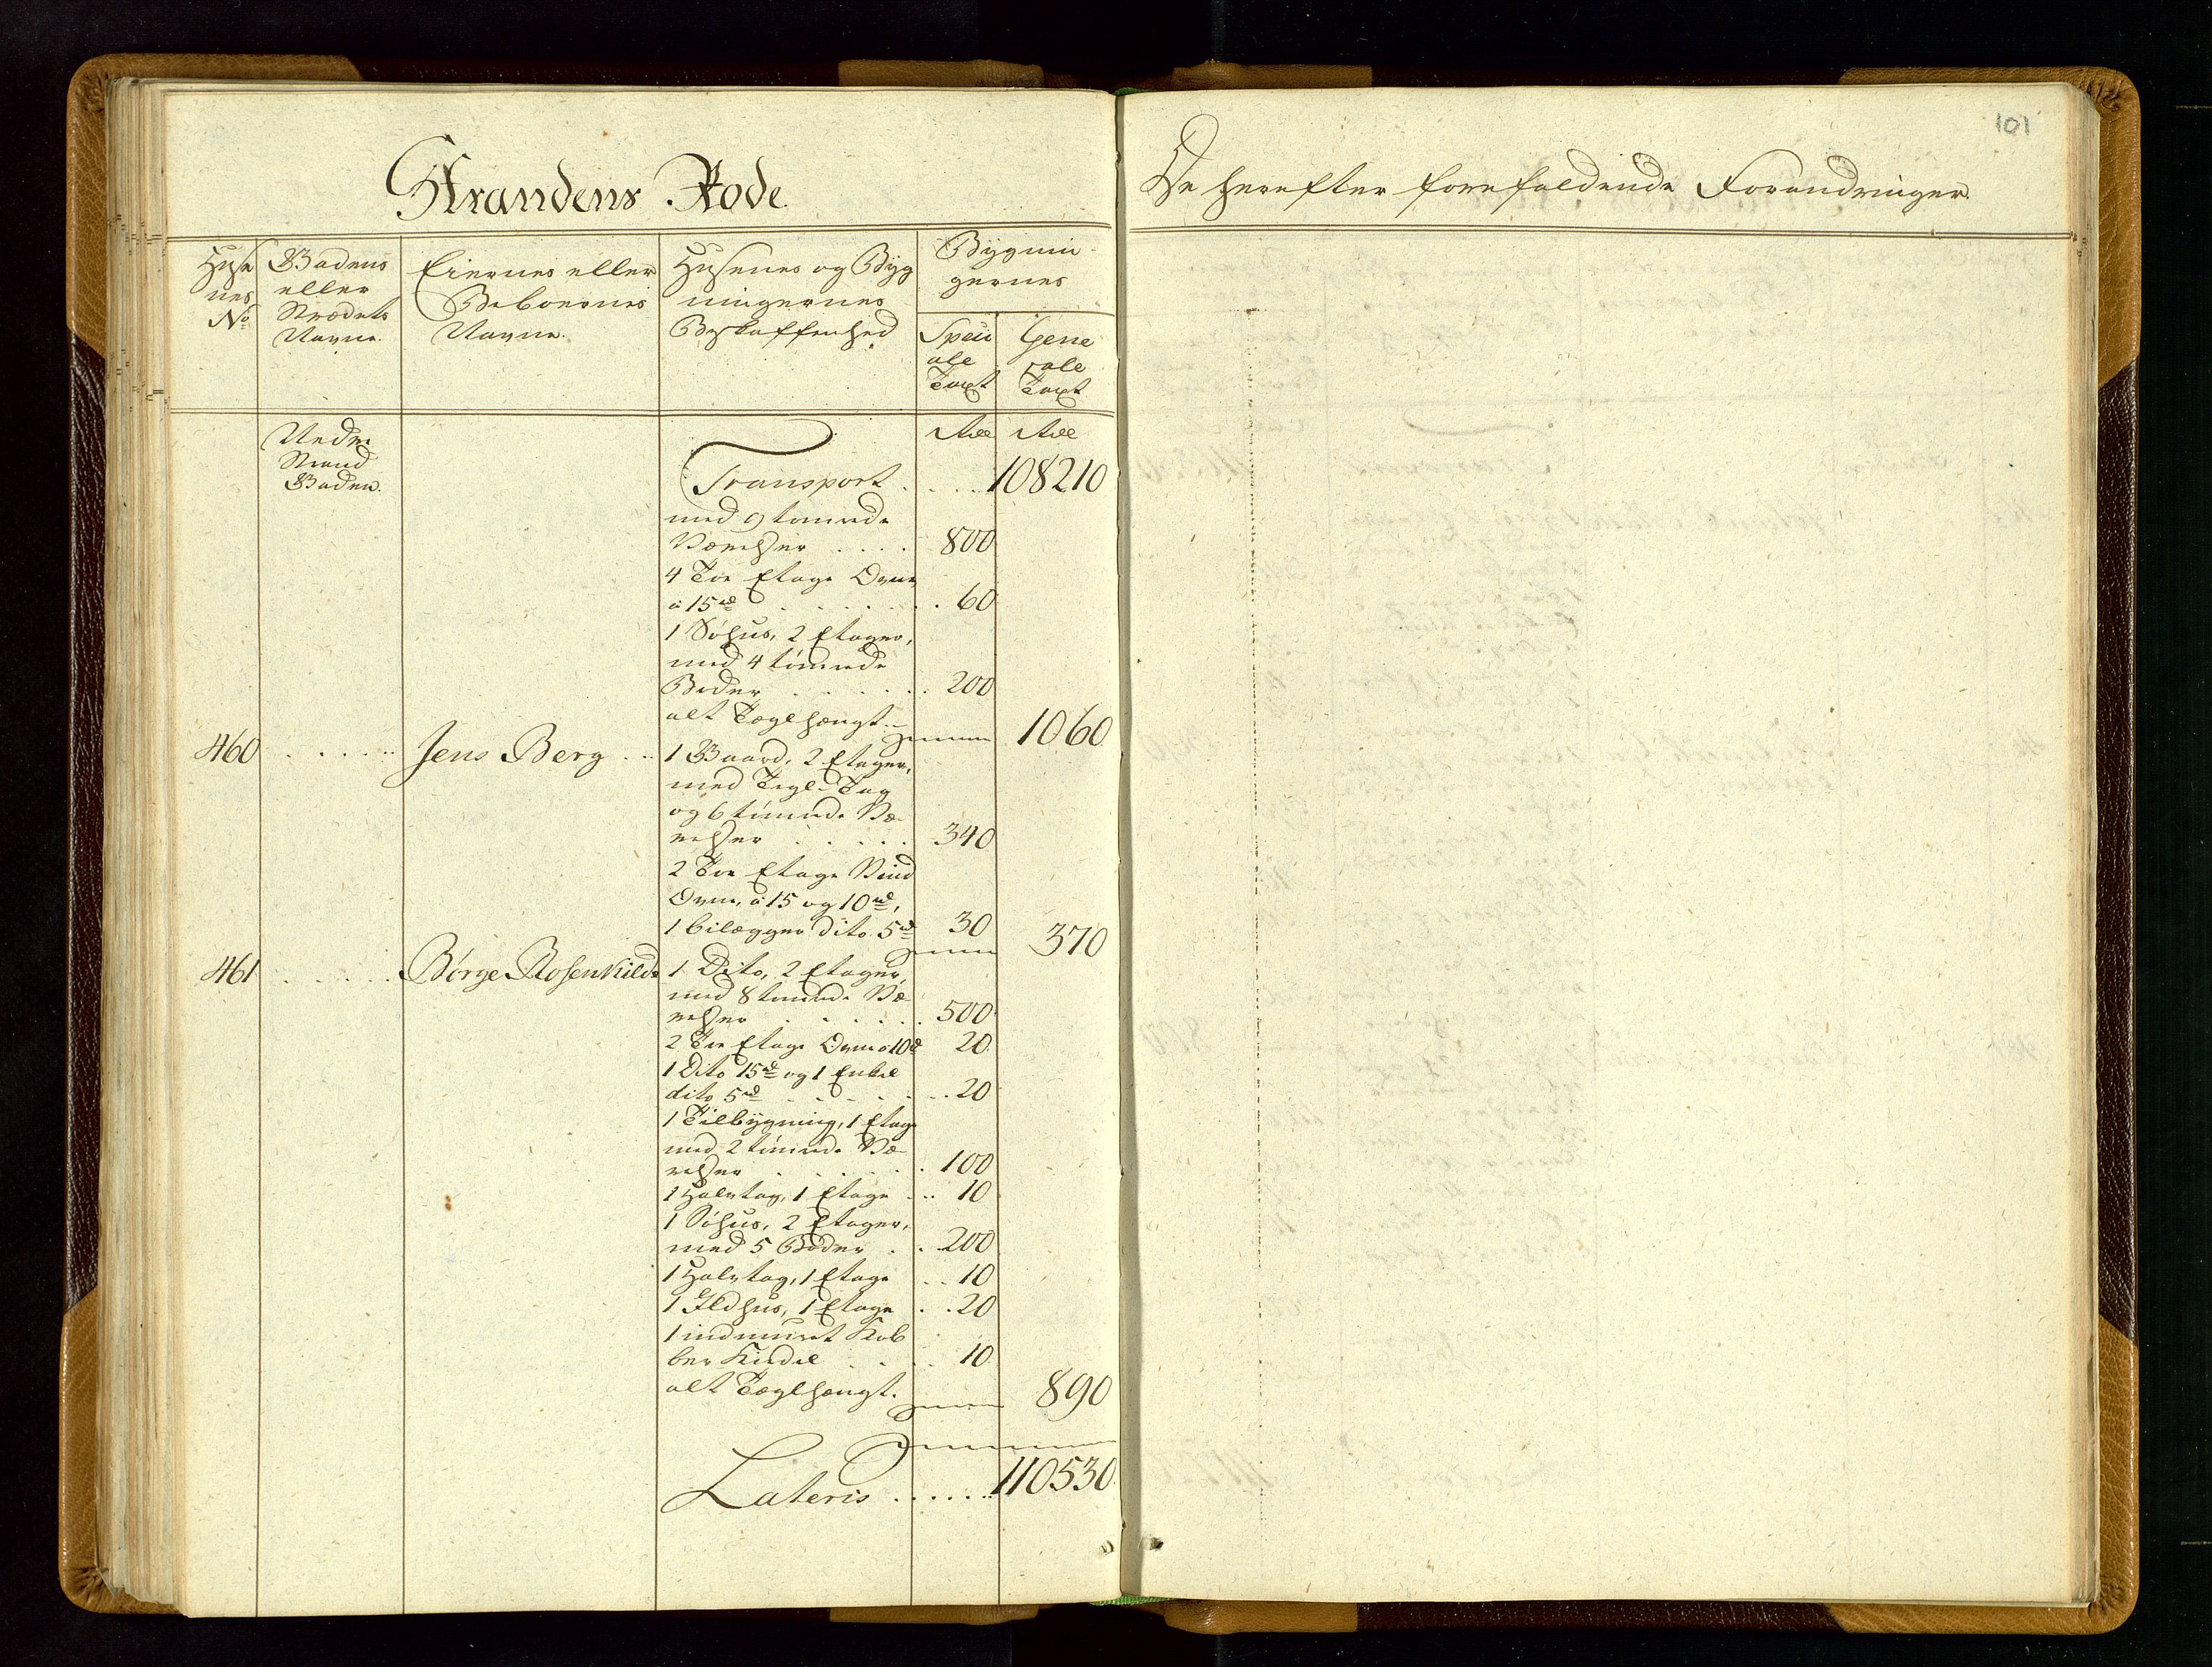 Strandens Rode
Huse
nes
No
Gadens
eller
Strædets
Navne.
Eiernes eller
Beboernes
Navne.
Husenes og Byg
ningernes
Beskaffenhed
Bygnin-
gernes
Speci
ale
Taxt
Gene
rale
Taxt
Nedre
Strand
Gaden.
Rdl Rdl
Transport . . . . 108210
med 9 tømrede
Værelser . . . . 800
4 Toe Etage Ovne
a 15rd . . . . . . 60
1 Søhus, 2 Etager,
med 4 tømrede
Boder . . . . . . 200
alt Tæglhængt.
1060
460 . . . . . Jens Berg . . 1 Gaard, 2 Etager,
med Tegl-Tag
og 6 tømrede Væ-
relser . . . . . 340
2 Toe Etage Vind
Ovne, a 15 og 10rd,
1 bilægger dito 5rd 30
370
461 . . . . . Børge Rosenkilde 1 Dito, 2 Etager,
med 8 tømrede Væ
relser . . . . . . 500
2 Toe Etage Ovne a 10rd 20
1 Dito 15rd og 1 Enkel
dito 5rd . . . . . . 20
1 Tilbygning, 1 Etage
med 2 tømrede Væ-
relser . . . . . . 100
1 Halvtag, 1 Etage . . . 10
1 Søhus, 2 Etager,
med 5 Boder . . . 200
1 Halvtag, 1 Etage . . 10
1 Ildhus, 1 Etage . . . 20
1 indmuret Kob
ber Kiedel . . . . 10
alt Tæglhængt.
890
Lateris . . . . . . 110530
101
De herefter forefaldende Forandringer.